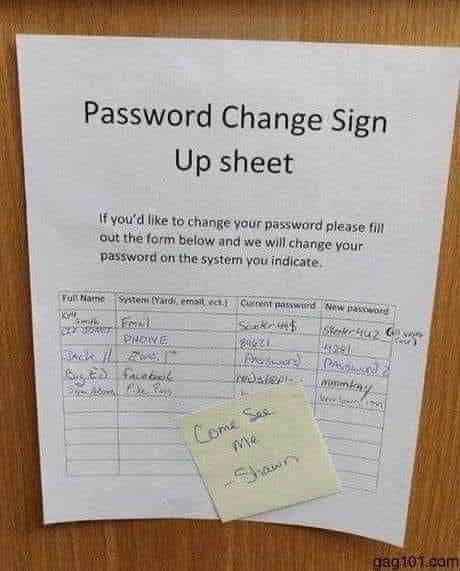 Password Change Sign
Up sheet
If you'd like to change your password please fill
out the form below and we will change your
password on the system you indicate.
Full Name System (Yardi, email, ect.) Current password New password
Kyle Smith Email
PHONE 89621 4281
Jack Password Password 2
Big Ed facebook
Come See
Me
- Shawn
gag101.com